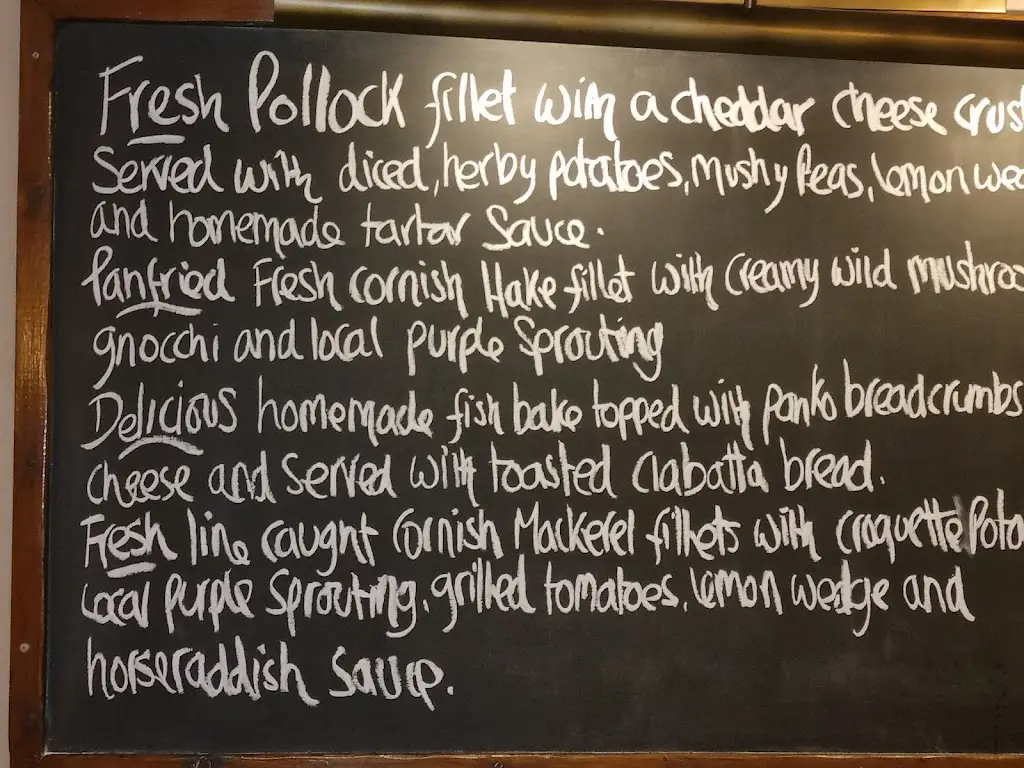 Fresh Pollock fillet with a cheddar cheese crus
Served with diced, herby potatoes, mushy Peas, lemon wed
and homemade tartar Sauce.
Panfried Fresh cornish Hake fillet with Creamy wild mushroo
gnocchi and local purple Sprouting
Delicious homemade fish bake topped with panko breadcrumbs
cheese and Served with toasted Ciabatta bread.
Fresh line caught Cornish Mackerel fillets with croquette Pota
Local purple Sprouting, grilled tomatoes, lemon wedge and
horseraddish sauce.